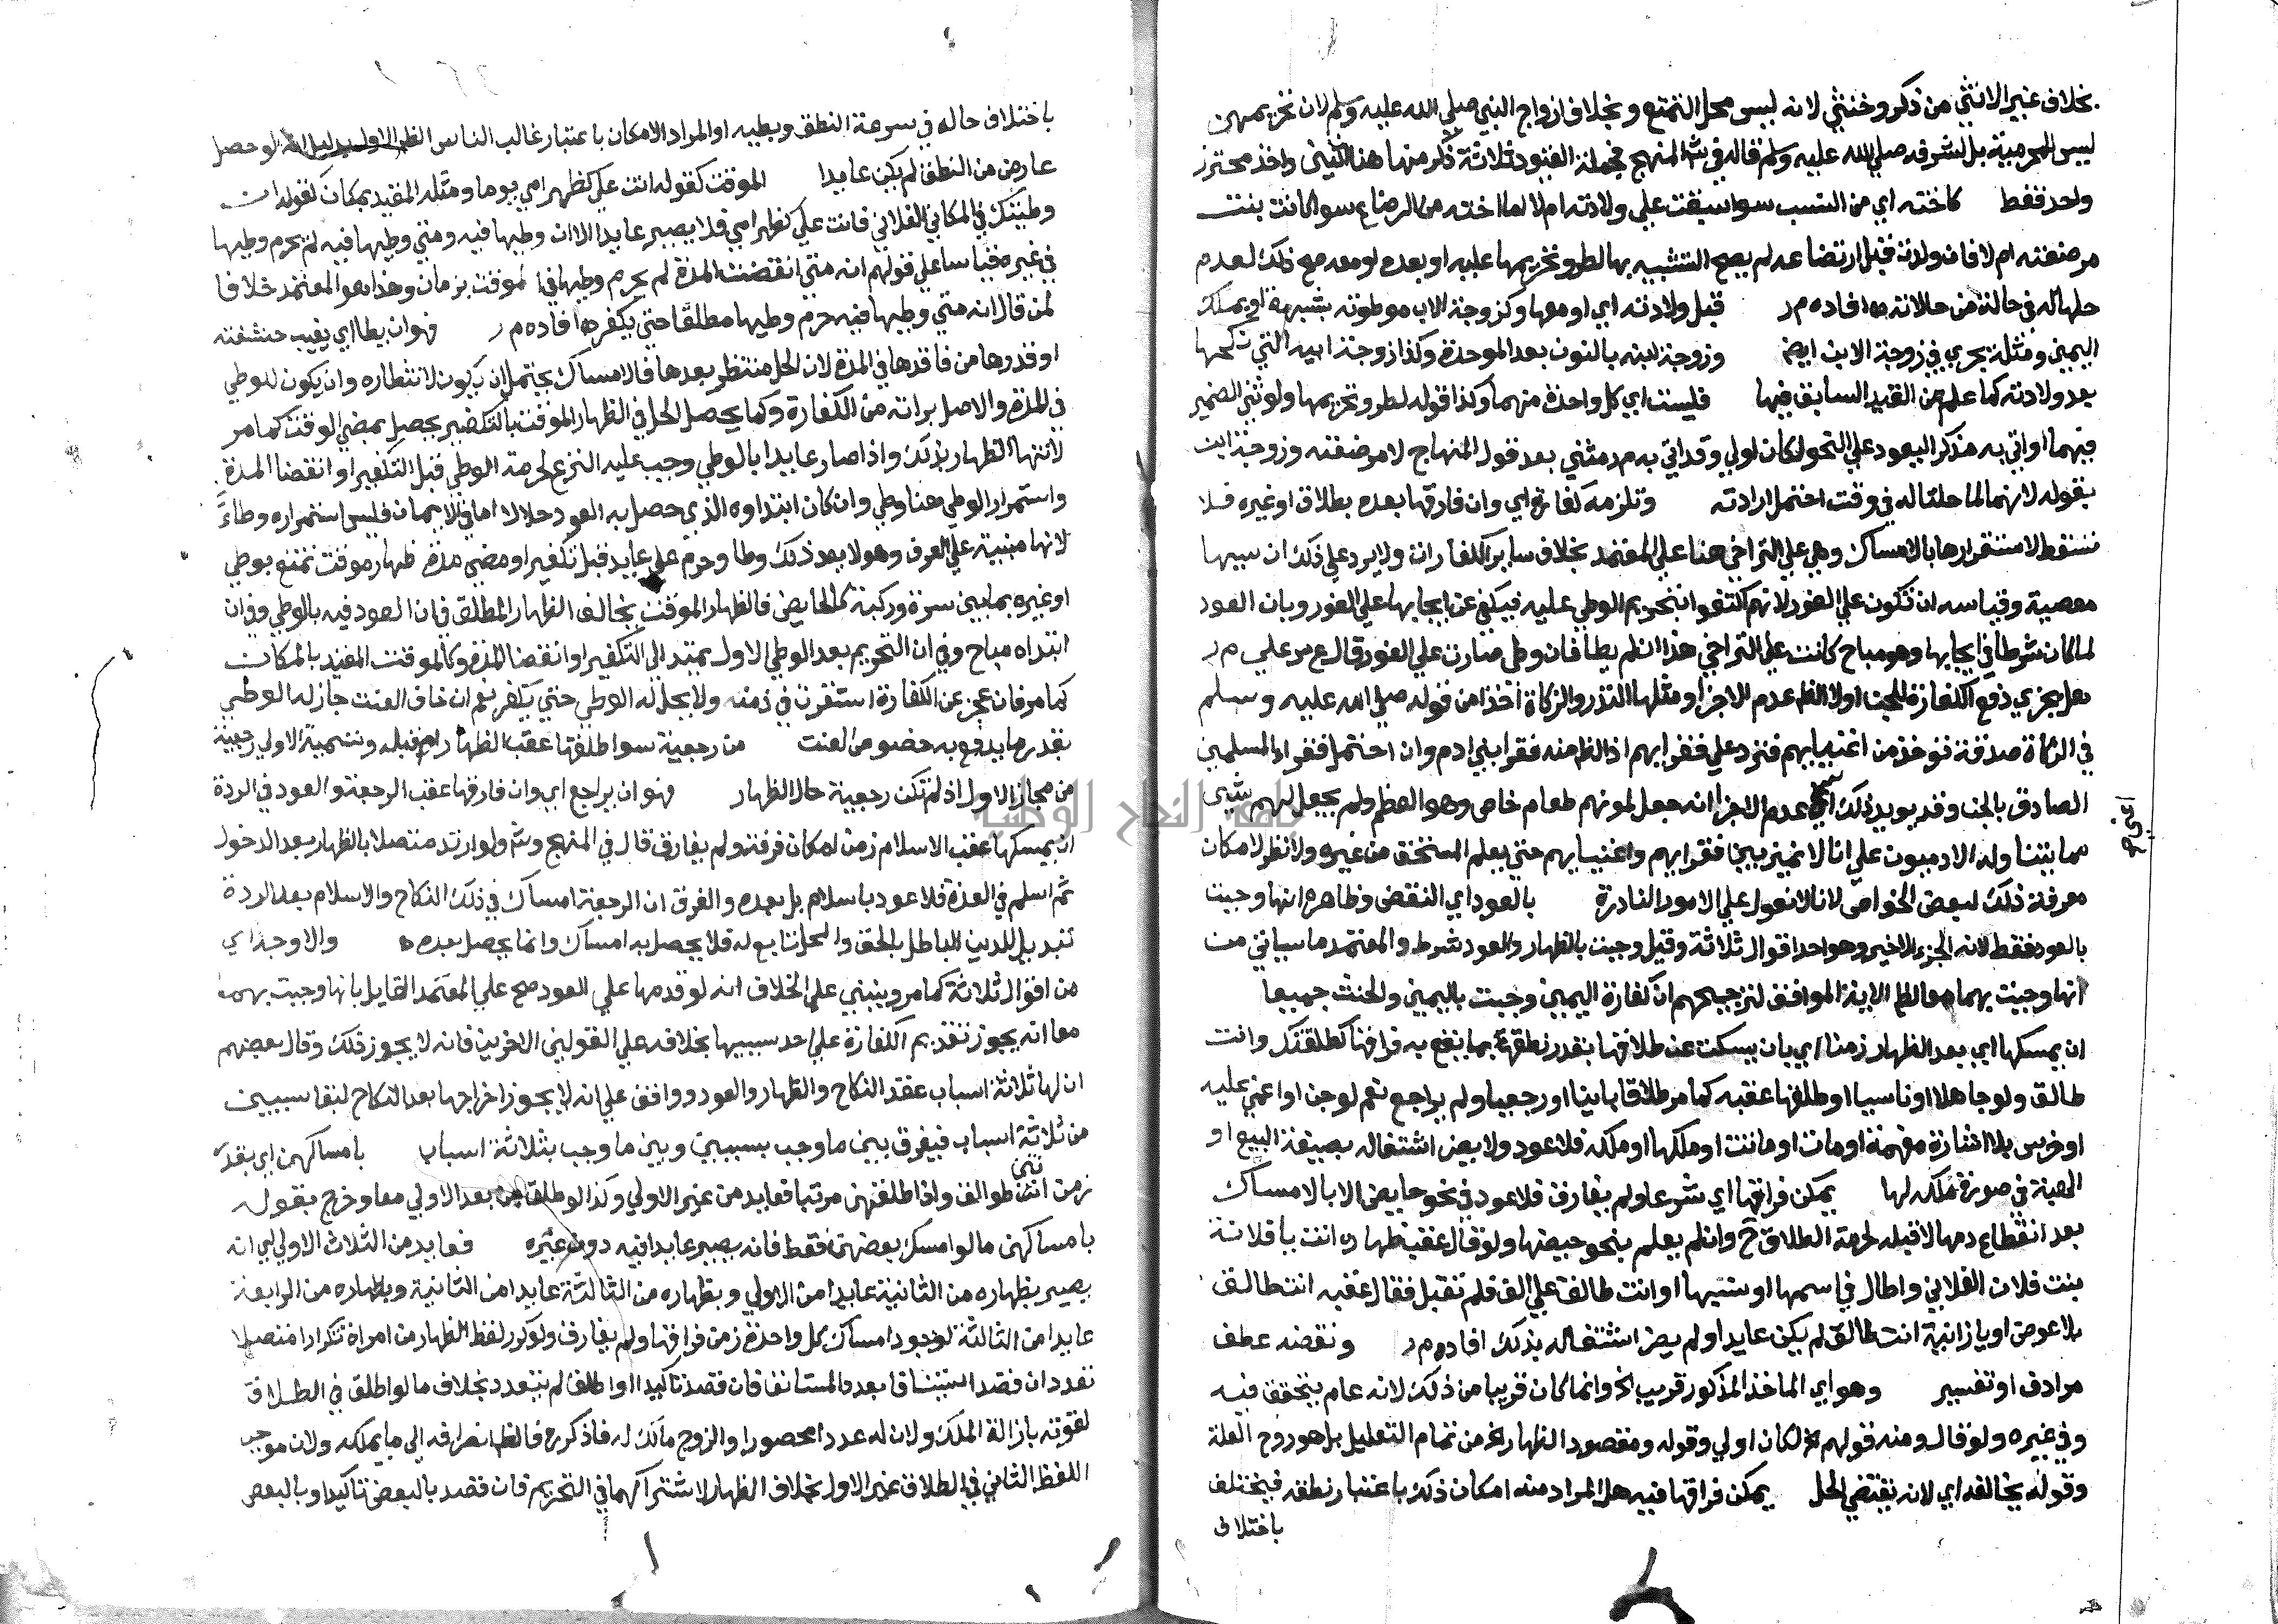 بخلاف غير الانثي من ذكر وخنثي لانه ليس محل التمتع و بخلاف ازواج النبي صلي الله عليه وسلم لان تحريمهن
ليس للمحرمية بل لشرفه صلي الله عليه وسلم قاله في المنهج فجملة القيود ثلاثة ذكر منها هنا اثنين واخذ محترز
واحد فقط كاخته اي من النسب سوا سبقت علي ولادته ام لا اما اخته من الرضاع سوا كانت بنت
مرضعته ام لا فان ولدت قبل ارتضاعه لم يصح التشبيه بها لطرو تحريمها عليه او بعده او معه صح ذلك لعدم
حلها له في حالة من حالاته اه افاده م ر قبل ولادته اي او معها وكزوجة الاب موطوته بشبهة او بملك
اليمين ومثله يجري في زوجة الابن ايض وزوجة ابنه بالنون بعد الموحدة وكذا زوجة ابيه التي نكحها
بعد ولادته كما علم من القيد السابق فيها فليست اي كل واحدة منهما وكذا قوله لطرو تحريمها ولو ثني الضمير
فيهما او اتي به مذكرا ليعود علي النحو لكان اولي وقد اتي به م ر مثني بعد قول المنهاج لا مرضعته وزوجة ابن
بقوله لانهما لما حلتا له في وقت احتمل ارادته وتلزمه كفارة اي وان فارقها بعده بطلاق او غيره فلا
تسقط لاستقرارها بالامساك وهي علي التراخي هنا علي المعتمد بخلاف ساير الكفارات ولا يرد علي ذلك ان سببها
معصية وقياسه ان تكون علي الفور لانهم اكتفوا بتحريم الوطي عليه فيكفي عن ايجابها علي الفور وبان العود
لما كان شرطا في ايجابها وهو مباح كانت علي التراخي هذا ان لم يطا فان وطي صارت علي الفور قال ع ر علي م ر
هل يجزي دفع الكفارة للجن اولا الظ عدم الاجزا ومثلها النذر والزكاة اخذا من قوله صلي الله عليه وسلم
في الزكاة صدقة تؤخذ من اغنيايهم فترد علي فقرايهم اذ الظ منه فقرا بني ادم وان احتمل فقراء المسلمين
الصادق بالجن وقد يويد ذلك اي عدم الاجزا انه جعل لمؤنهم طعام خاص وهو العظم ولم يجعل لهم شي
مما يتناوله الادميون علي انا لا نميز بين فقرايهم واغنيايهم حتي يعلم المستحق من غيره ولا نظر لامكان
معرفة ذلك لبعض الخواص لانا لا نعول علي الامور النادرة بالعود اي النقض وظاهره انها وجبت
بالعود فقط لانه الجزء الاخير وهو احد اقوال ثلاثة وقيل وجبت بالظهار والعود شرط والمعتمد ما سياتي من
انها وجبت بهما معا لظ الاية الموافق لترجيحهم ان كفارة اليمين وجبت باليمين والحنث جميعا
ان يمسكها اي بعد الظهار زمنا اي بان يسكت عن طلاقها بقدر نطقه بما يقع به فراقها كطلقتك وانت
طالق ولو جاهلا او ناسيا او طلقها عقبه كما مر طلاقا باينا او رجعيا ولم يراجع نعم لو جن او اغمي عليه
او خرس بلا اشارة مفهمة او مات او ماتت او ملكها او ملكته فلا عود ولا يضر اشتغاله بصيغة البيع او
الهبة في صورة ملكه لها يمكن فراقها اي شرعا ولم يفارق فلا عود في نحو حايض الا بالامساك
بعد انقطاع دمها لا قبله لحرمة الطلاق ح وان لم يعلم بنحو حيضها ولو قال عقب ظهاره انت يا فلانة
بنت فلان الفلاني واطال في اسمها او نسبها او انت طالق علي الف فلم تقبل فقال عقبه انت طالق
بلا عوض او يا زانية انت طالق لم يكن عايدا ولم يضر اشتغاله بذلك افاده م ر ونقضه عطف
مرادف او تفسير وهو اي الماخذ المذكور قريب الخ وانما كان قريبا من ذلك لانه عام يتحقق فيه
وفي غيره ولو قال ومنه قولهم الخ لكان اولي وقوله ومقصود الظهار الخ من تمام التعليل بل هو روح العلة
وقوله يخالفه اي لانه يقتضي الحل يمكن فراقها فيه هل المراد منه امكان ذلك باعتبار نطقه فيختلف
باختلاف
باختلاف حاله في سرعة النطق وبطيه او المراد الامكان باعتبار غالب الناس الظ الاول بدليل انه لو حصل
عارض من النطق لم يكن عايدا الموقت كقوله انت علي كظهر امي يوما ومثله المقيد بمكان كقوله ان
وطيتك في المكان الفلاني فانت علي كظهر امي فلا يصير عايدا الا ان وطيها فيه ومتي وطيها فيه لم يحرم وطيها
في غيره قياسا علي قولهم انه متي انقضت المدة لم يحرم وطيها في الموقت بزمان وهذا هو المعتمد خلافا
لمن قال انه متي وطيها فيه حرم وطيها مطلقا حتي يكفر اه افاده م ر فهو ان يطا اي يغيب حشفته
او قدرها من فاقدها في المدة لان الحل منتظر بعدها فالامساك يحتمل ان يكون لانتظاره وان يكون للوطي
في المدة والاصل براته من الكفارة وكما يحصل الحل في الظهار الموقت بالتكفير يحصل بمضي الوقت كما مر
لانتها الظهار بذلك واذا صار عايدا بالوطي وجب عليه النزع لحرمة الوطي قبل التكفير او انقضا المدة
واستمرار الوطي هنا وطي وان كان ابتداوه الذي حصل به العود حلالا اما في الايمان فليس استمراره وطأ
لانها مبنية علي العرف وهو لا يعد ذلك وطا وحرم علي عايد قبل تكفير او مضي مدة ظهار موقت تمتع بوطي
او غيره بما بين سرة وركبة كالحايض فالظهار الموقت يخالف الظهار المطلق في ان العود فيه بالوطي وفي ان
ابتداه مباح وفي ان التحريم بعد الوطي الاول يمتد الي التكفير او انقضا المدة وكالموقت المقيد بالمكان
كما مر فان عجز عن الكفارة استقرت في ذمته ولا يحل له الوطي حتي يكفر نعم ان خاف العنت جاز له الوطي
بقدر ما يدفع به خصوص العنت من رجعية سوا طلقها عقب الظهار ام قبله وتسمية الاولي رجعية
من مجاز الاول اذ لم تكن رجعية حال الظهار فهو ان يراجع اي وان فارقها عقب الرجعة والعود في الردة
ان يمسكها عقب الاسلام زمن امكان فرقة ولم يفارق قال في المنهج وش ولو ارتد متصلا بالظهار بعد الدخول
ثم اسلم في العدة فلا عود باسلام بل بعده والفرق ان الرجعة امساك في ذلك النكاح والاسلام بعد الردة
تبديل للدين الباطل بالحق والحل تابع له فلا يحصل به امساك وانما يحصل بعده اه والاوجه اي
من اقوال ثلاثة كما مر وينبني علي الخلاف انه لو قدمها علي العود صح علي المعتمد القايل بانها وجبت بهما
معا انه يجوز تقديم الكفارة علي احد سببيها بخلافه علي القولين الاخرين فانه لا يجوز ذلك وقال بعضهم
ان لها ثلاثة اسباب عقد النكاح والظهار والعود ووافق علي انه لا يجوز اخراجها بعد النكاح لبقا سببين
من ثلاثة اسباب فيفرق بين ما وجب بسببين وبين ما وجب بثلاثة اسباب بامساكهن اي بقدر
زمن انتن طوالق واذا طلقهن مرتبا فعايد من غير الاولي وكذا لو طلق من بعد الاولي معا وخرج بقوله
بامساكهن ما لو امسك بعضهن فقط فانه يصير عايدا فيه دون غيره فعايد من الثلاث الاولي اي انه
يصير بظهاره من الثانية عايدا من الاولي وبظهاره من الثالثة عايدا من الثانية وبظهاره من الرابعة
عايدا من الثالثة لوجود امساك كل واحدة زمن فراقها ولم يفارق ولو كرر لفظ الظهار من امراة تكرارا متصلا
تعدد ان قصد استينافا بعدد المستانف فان قصد تاكيدا او اطلق لم يتعدد بخلاف ما لو اطلق في الطلاق
لقوته بازالة الملك ولان له عددا محصورا والزوج مالك له فاذا كرره فالظ انصرافه الي ما يملكه ولان موجب
اللفظ الثاني في الطلاق غير الاول بخلاف الظهار لاشتراكهما في التحريم فان قصد بالبعض تاكيدا وبالبعض
جامعة النجاح الوطنية